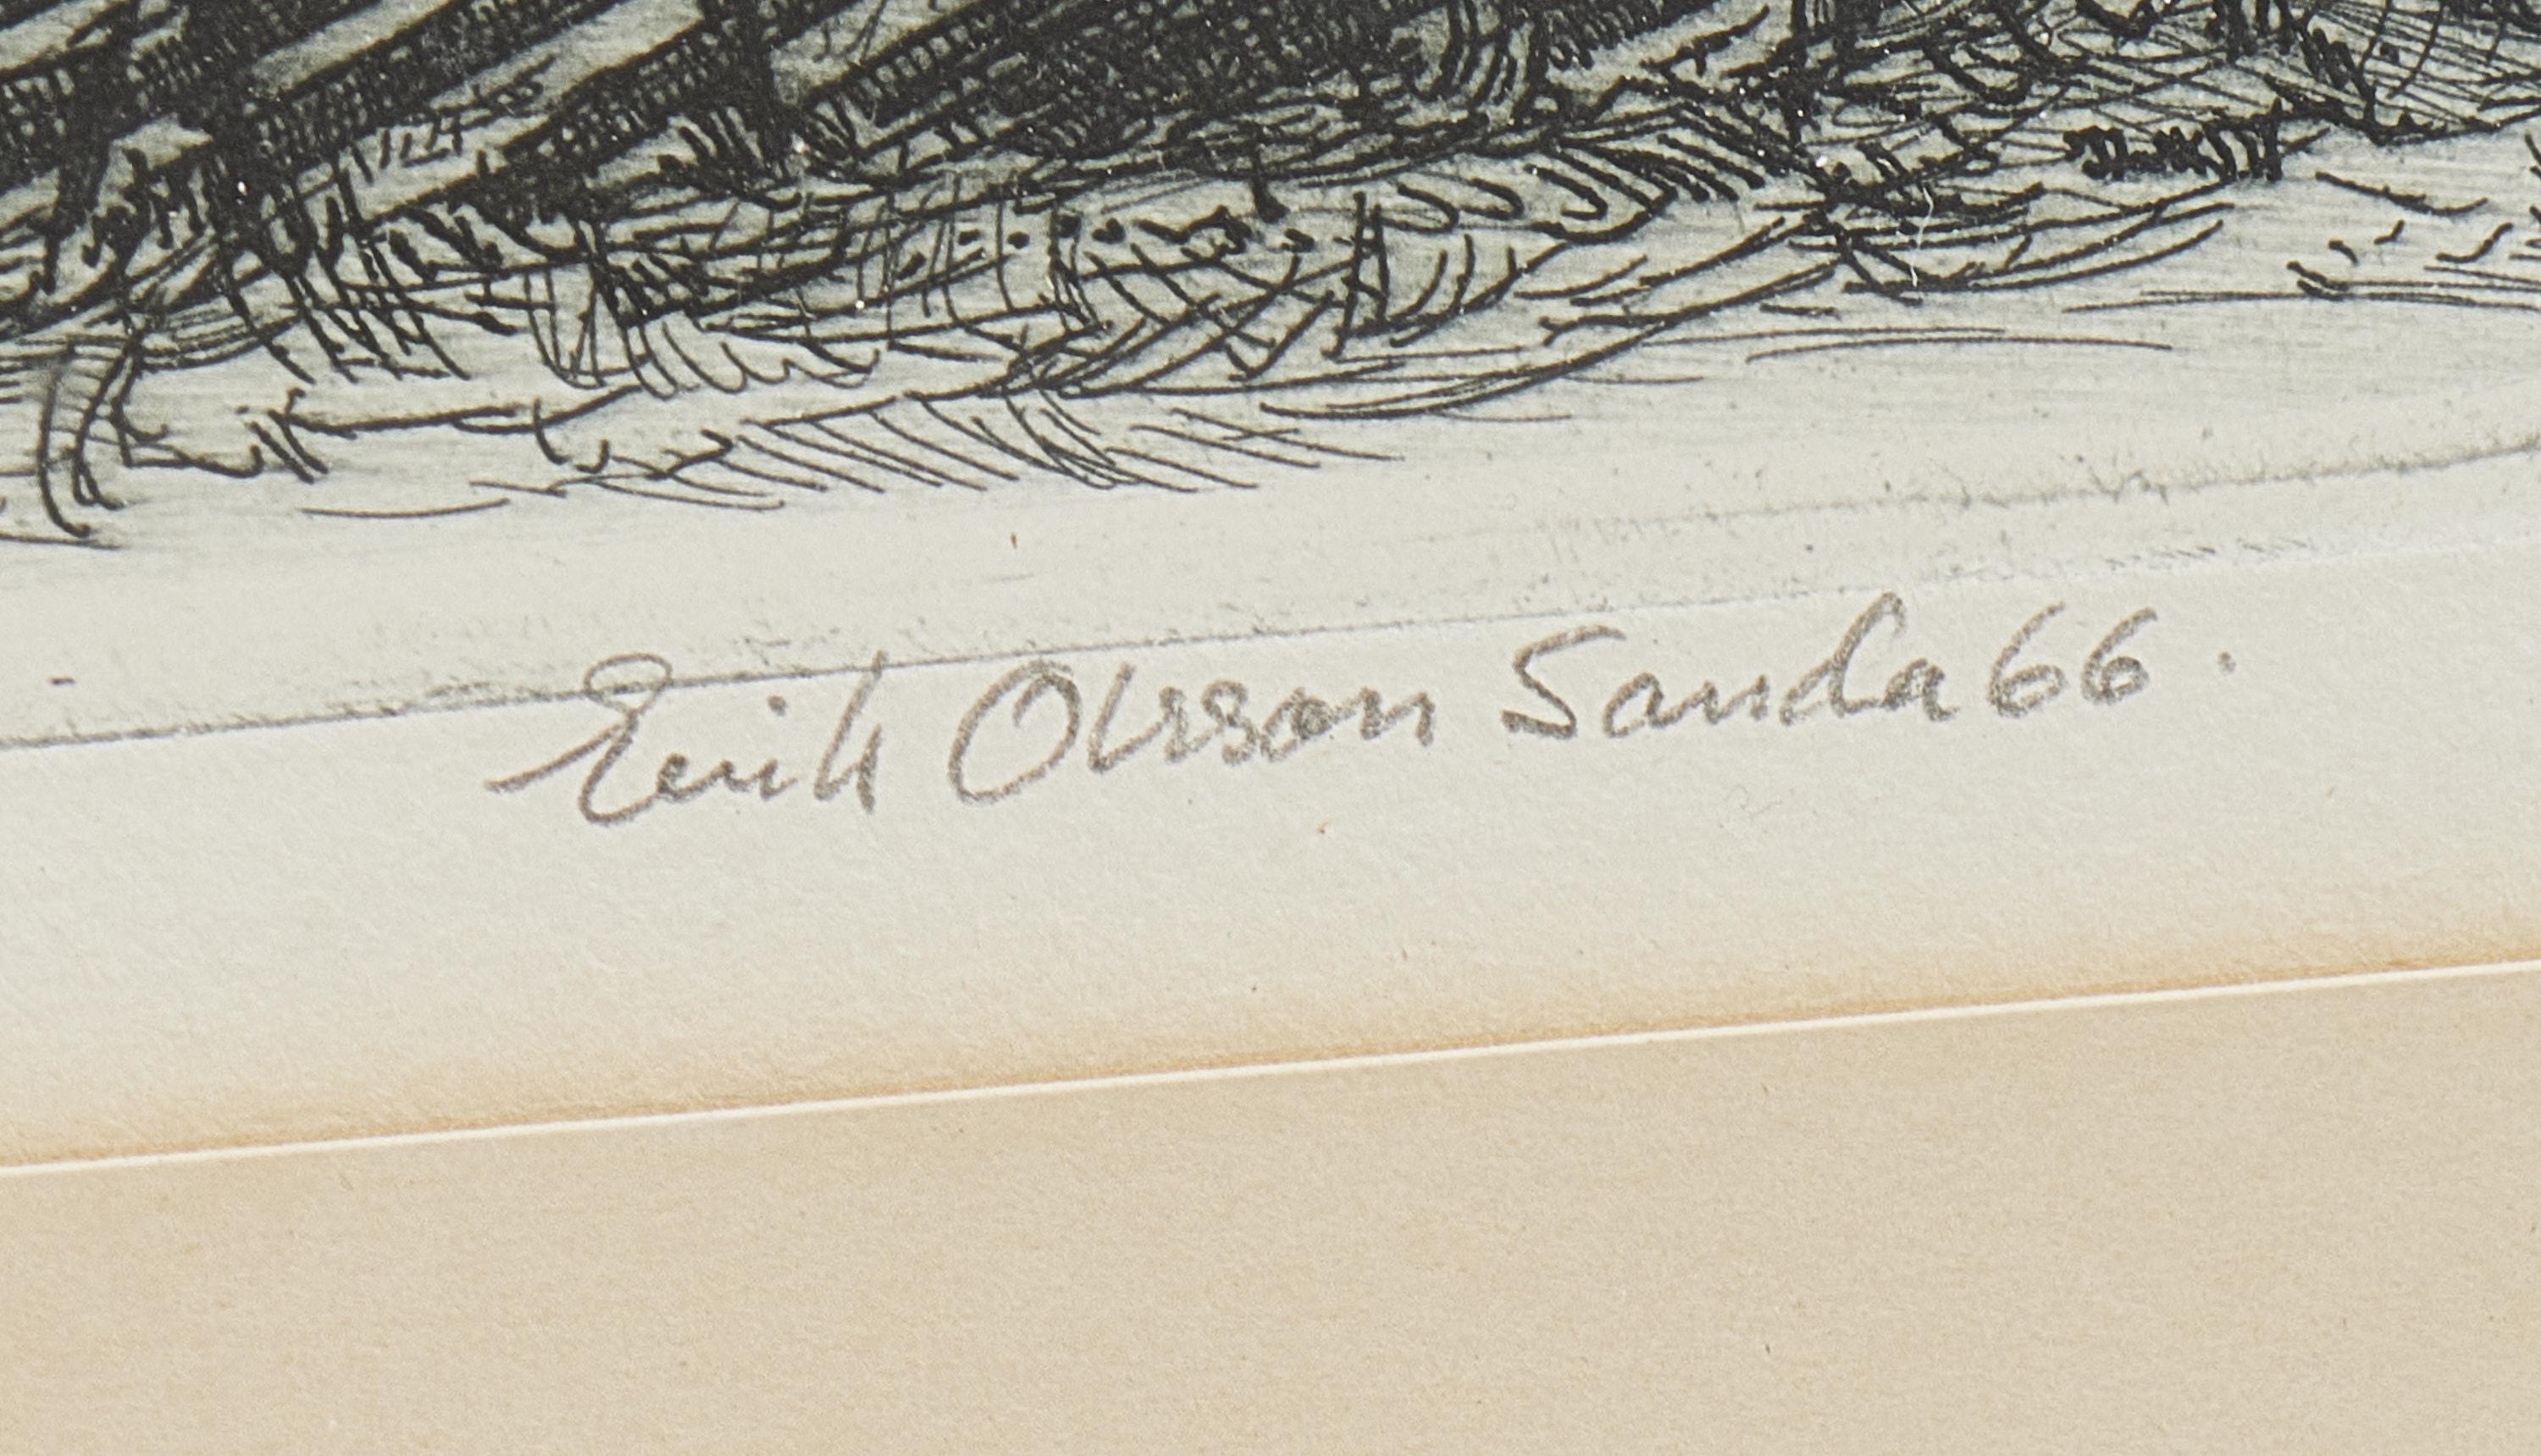 Erik Olsson Sanda 66.